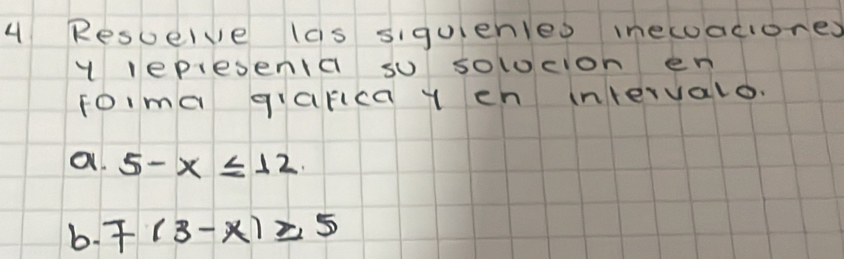 4 Resuelve las siguientes inecuaciones
y representa su solucion en
forma grafica y en intervalo.
a. 5 - x ≤ 12.
b. 7 (3 - x) ≥ 5